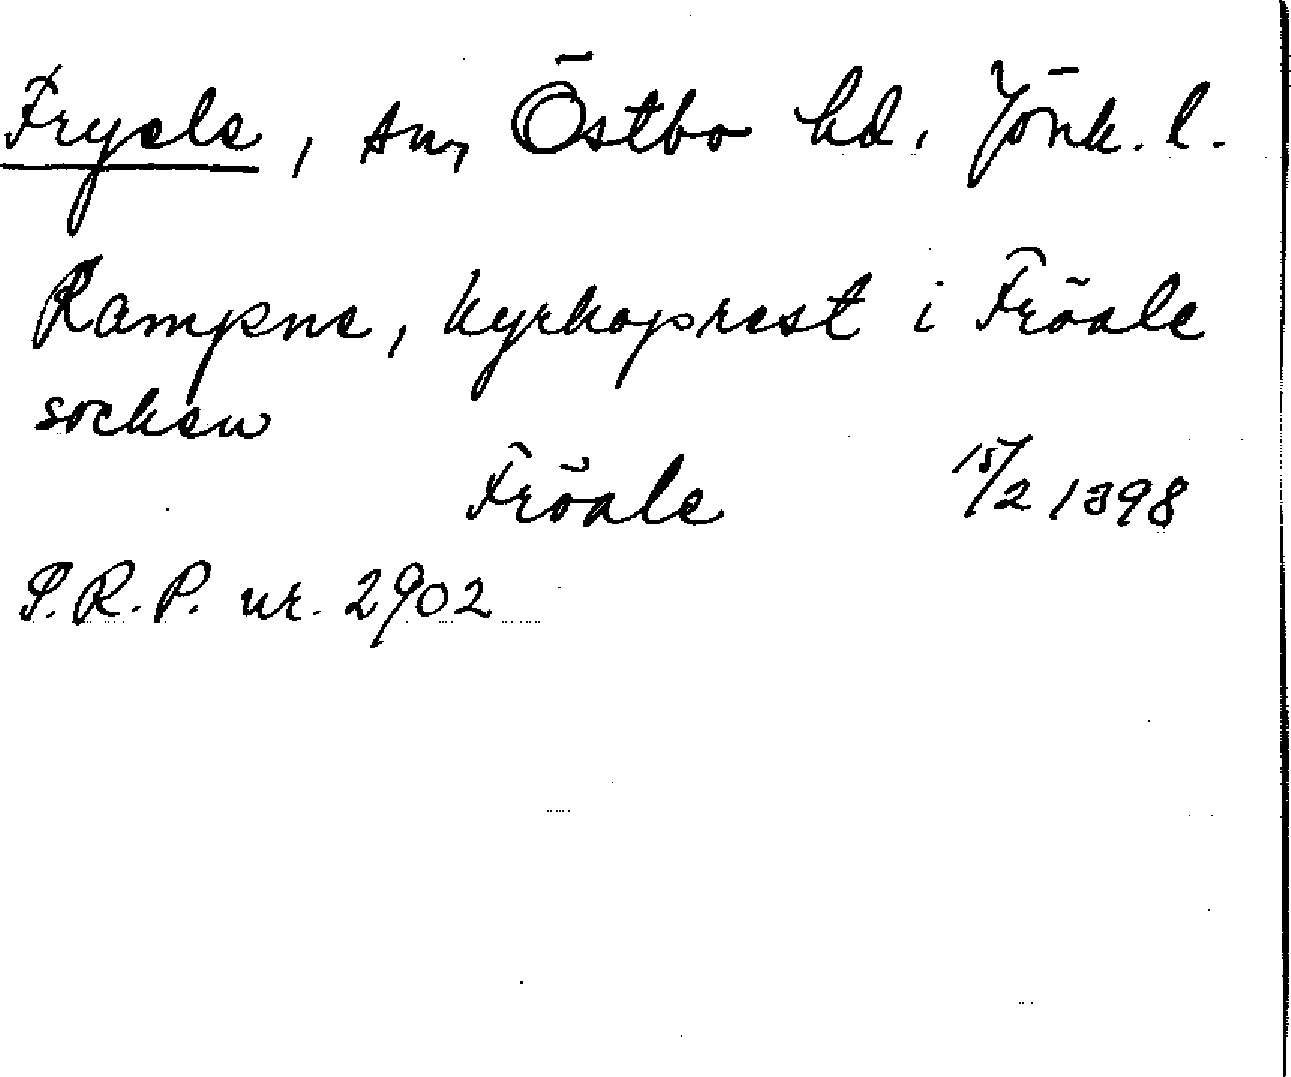 Fryele, sn, Östbo hd, Jönk. l.
Rampne, kyrkoprest i Fröale
socken
Fröale 15/2 1398
S.R.P. nr. 2902